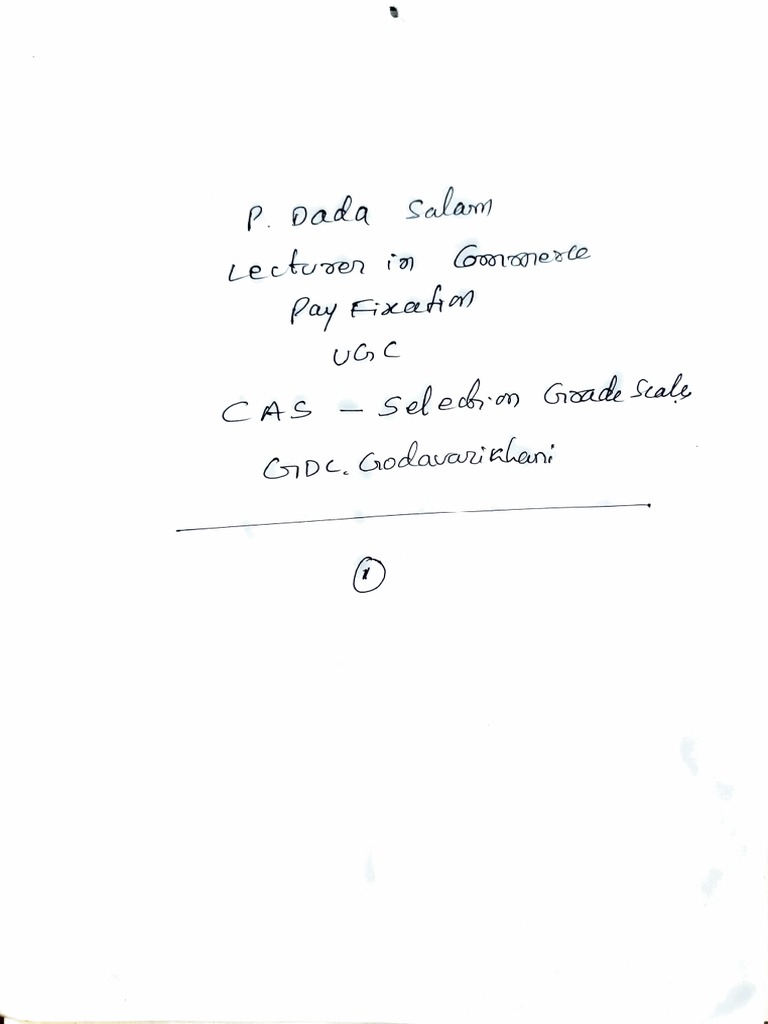 P. Dada Salam
Lecturer in Commerce
Pay Fixation
UGC
CAS - Selection Grade Scale
GDC. Godavarikhani
1